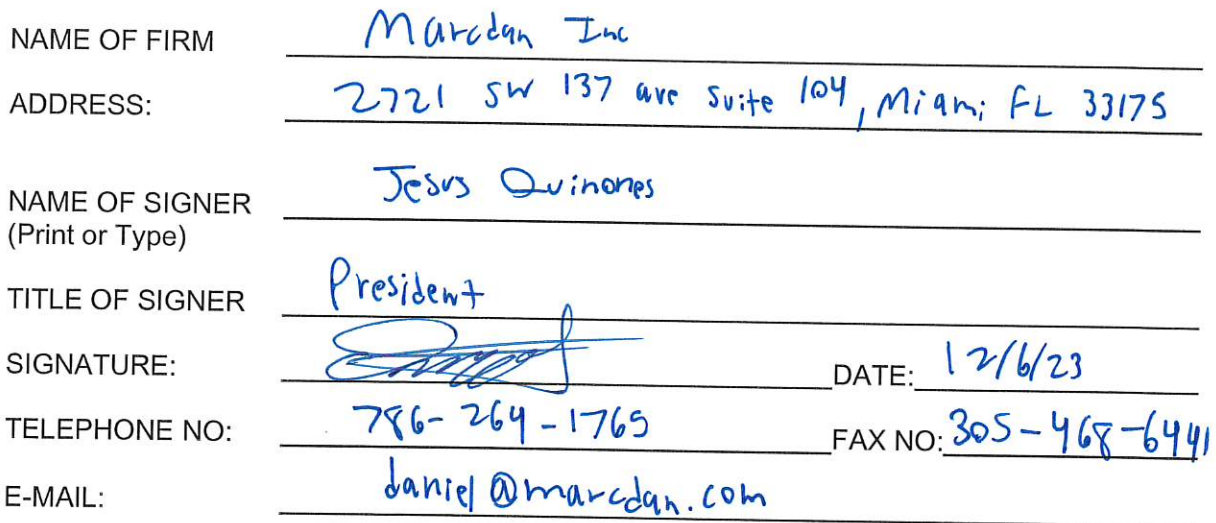 NAME OF FIRM Marcdan Inc
ADDRESS: 2721 SW 137 ave Suite 104, Miami FL 33175
Jesus Quinones
NAME OF SIGNER
(Print or Type)
TITLE OF SIGNER President
SIGNATURE: DATE: 12/6/23
TELEPHONE NO: 786-264-1765 FAX NO: 305-468-6441
E-MAIL: daniel@marcdan.com